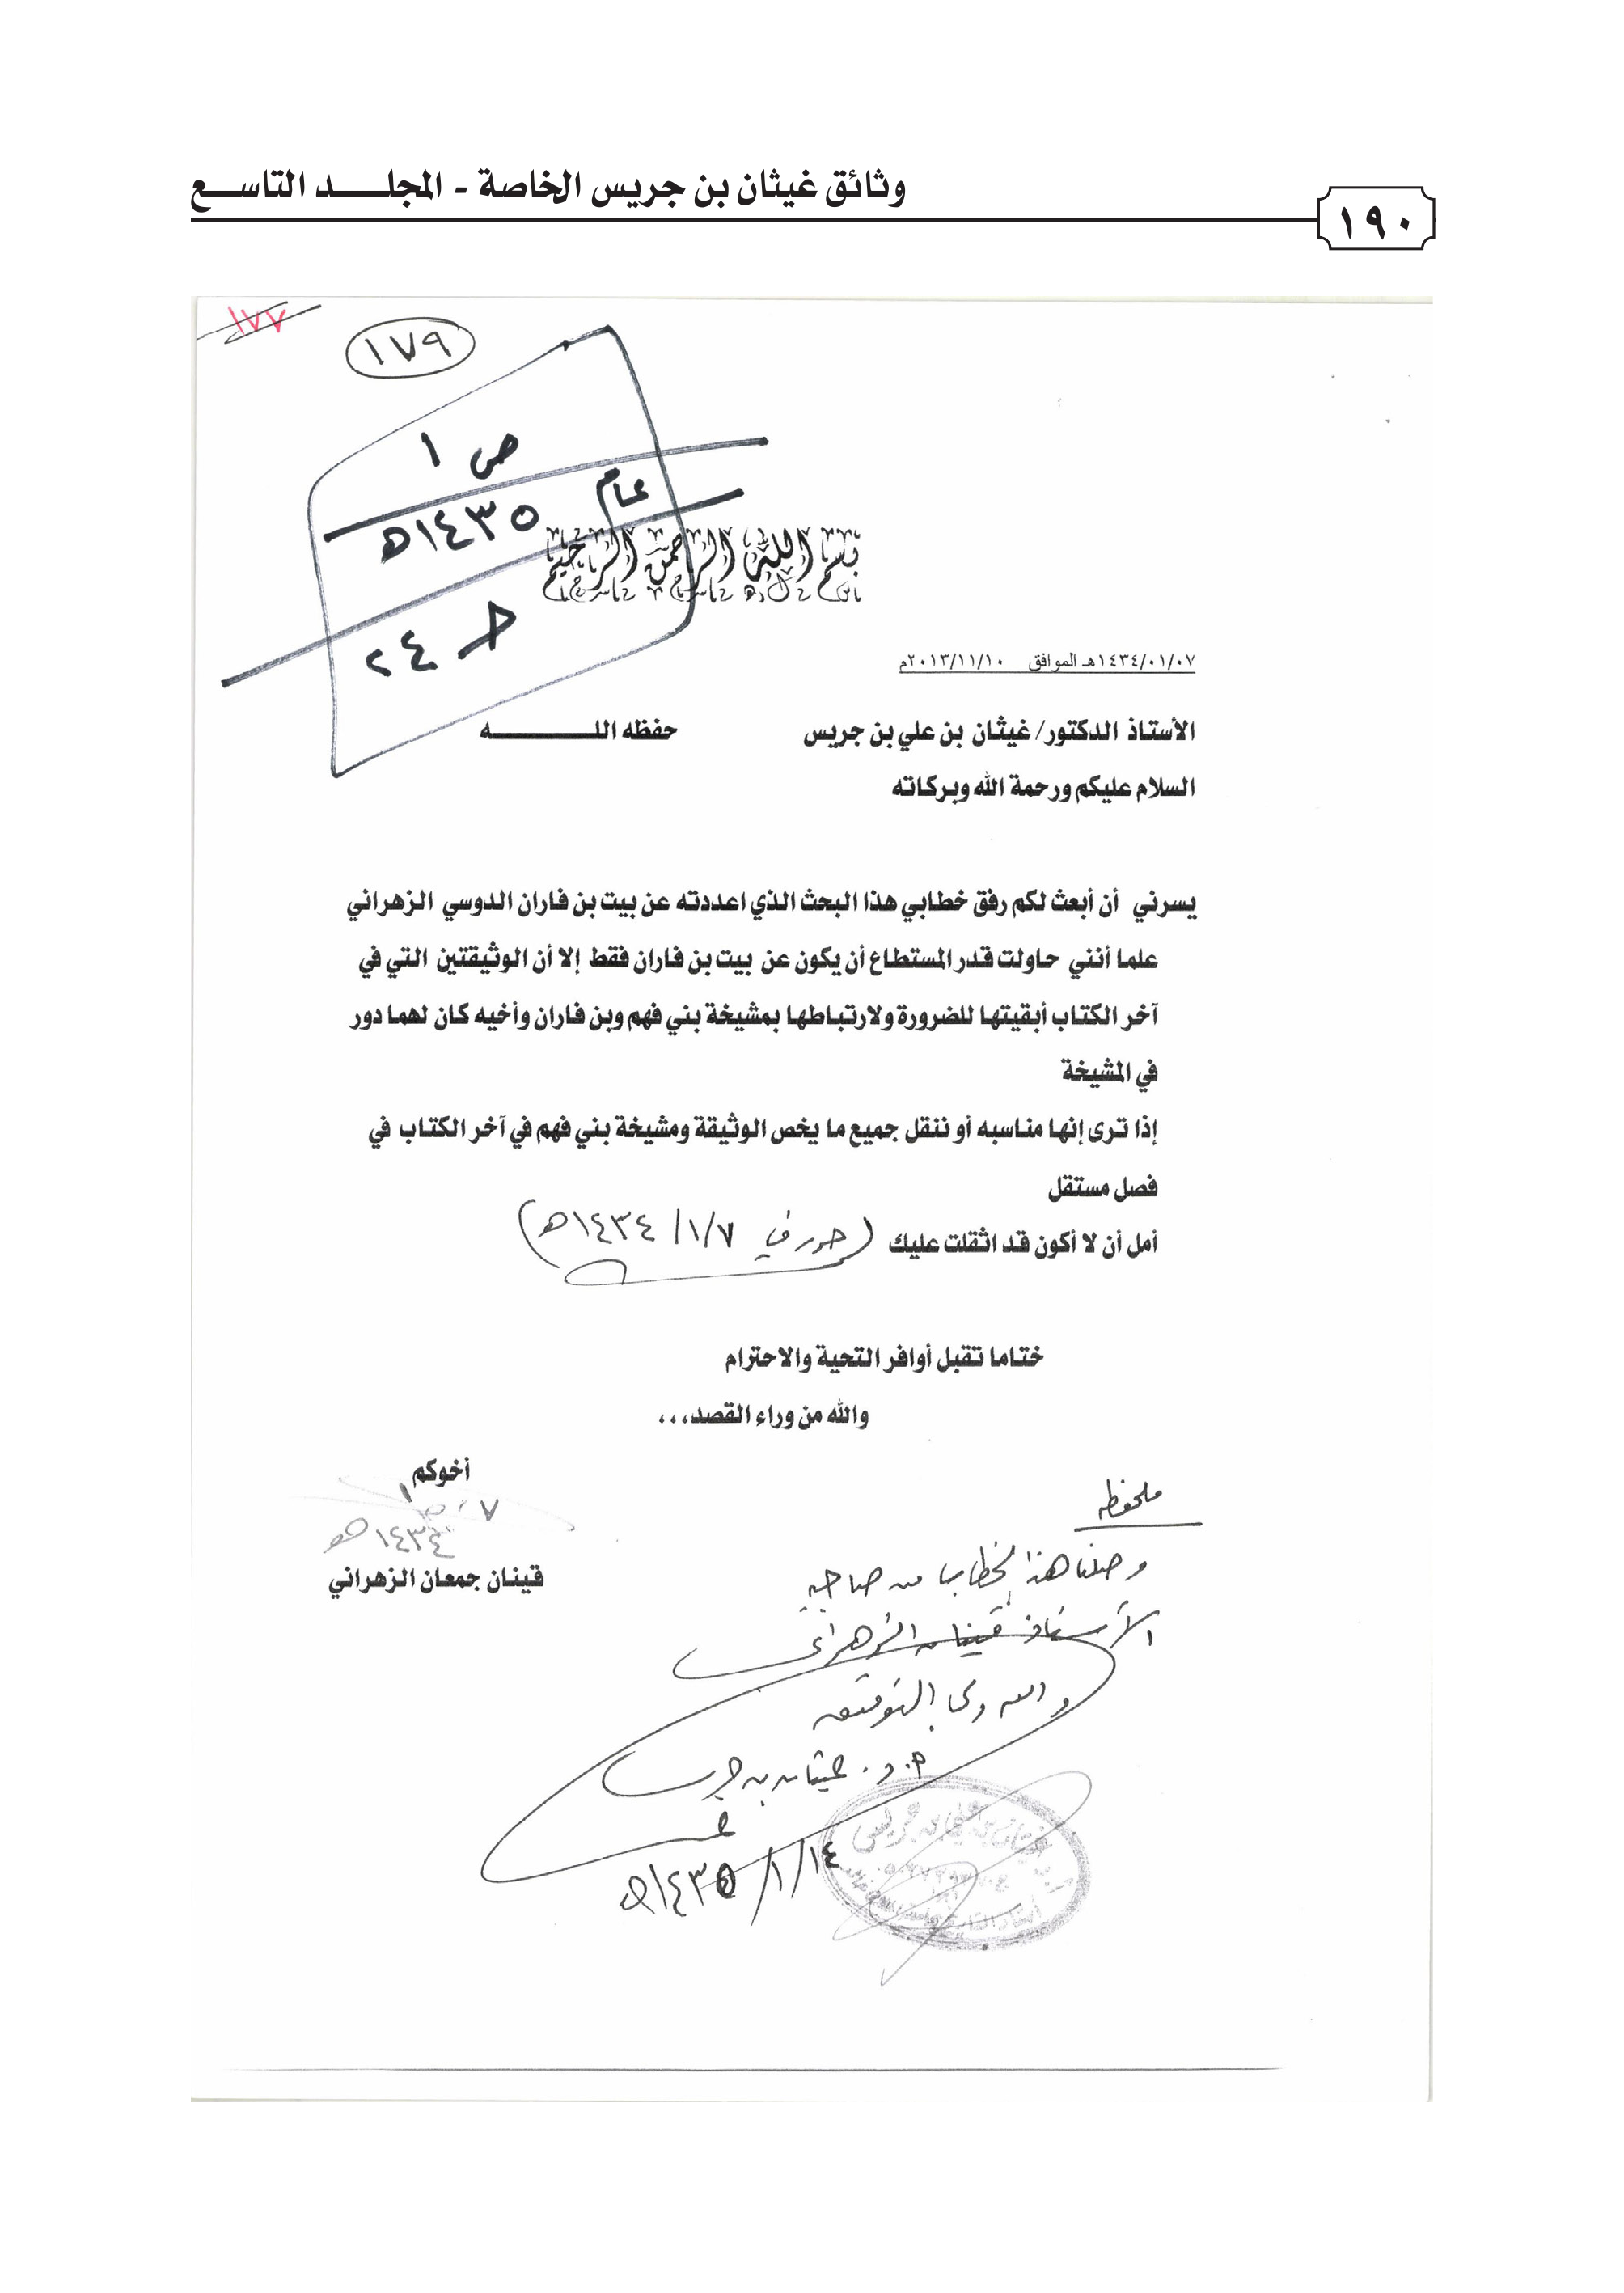 وثائق غيثان بن جريس الخاصة - المجلـــــد التاســـع
١٩٠
١٧٧
١٧٩
ص ١
عام ١٤٣٥هـ
حـ ٢٤
بسم الله الرحمن الرحيم
١٤٣٤/٠١/٠٧هـ الموافق ٢٠١٣/١١/١٠م
الأستاذ الدكتور/ غيثان بن علي بن جريس حفظه اللـــــــــــه
السلام عليكم ورحمة الله وبركاته
يسرني أن أبعث لكم رفق خطابي هذا البحث الذي اعددته عن بيت بن فاران الدوسي الزهراني
علما أنني حاولت قدر المستطاع أن يكون عن بيت بن فاران فقط إلا أن الوثيقتين التي في
آخر الكتاب أبقيتها للضرورة ولارتباطها بمشيخة بني فهم وبن فاران وأخيه كان لهما دور
في المشيخة
إذا ترى إنها مناسبه أو ننقل جميع ما يخص الوثيقة ومشيخة بني فهم في آخر الكتاب في
فصل مستقل
أمل أن لا أكون قد اثقلت عليك (حرر في ١/٧/ ١٤٣٤هـ)
ختاما تقبل أوافر التحية والاحترام
والله من وراء القصد،،،
أخوكم
١٤٣٤هـ
قينان جمعان الزهراني
ملحوظه
وصلنا هذا الخطاب من صاحبه
الأستاذ قينان الزهراني
والله ولي التوفيق
أ.د. غيثان بن جريس
١٤/١/١٤٣٥هـ